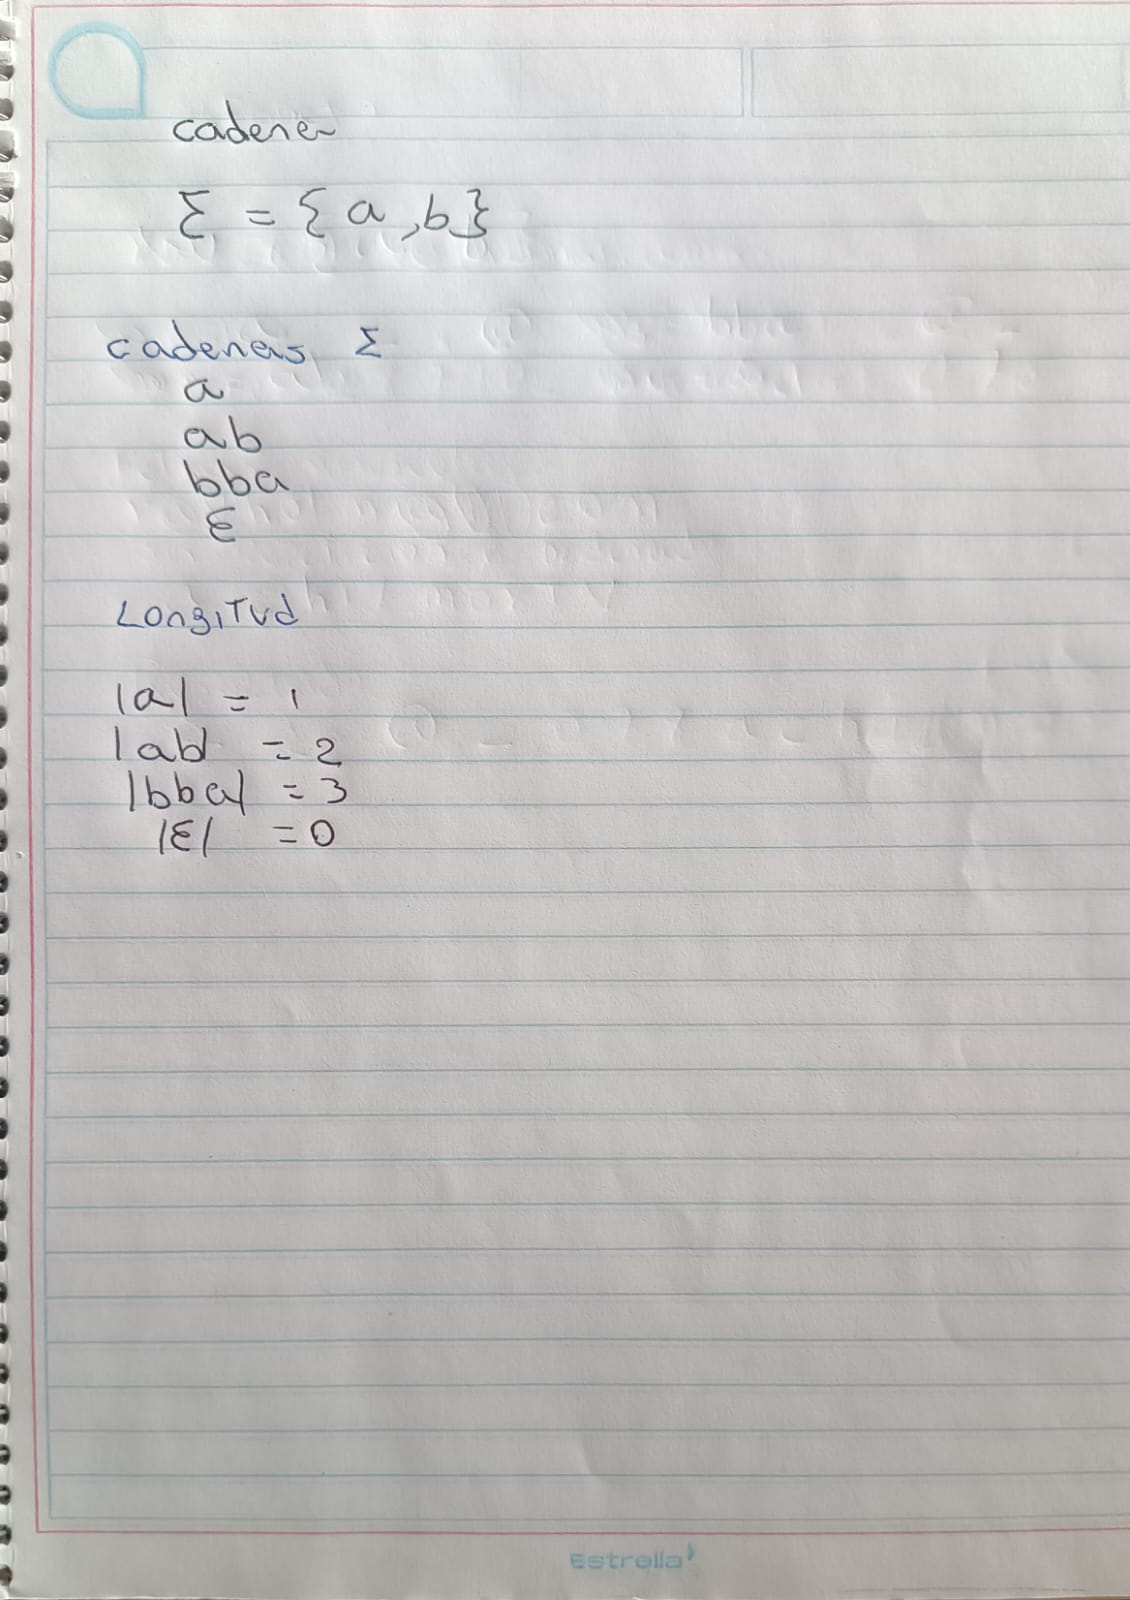 cadena
Σ = { a , b }
cadenas Σ
a
ab
bba
ε
Longitud
|a| = 1
|ab| = 2
|bba| = 3
|ε| = 0
Estrella